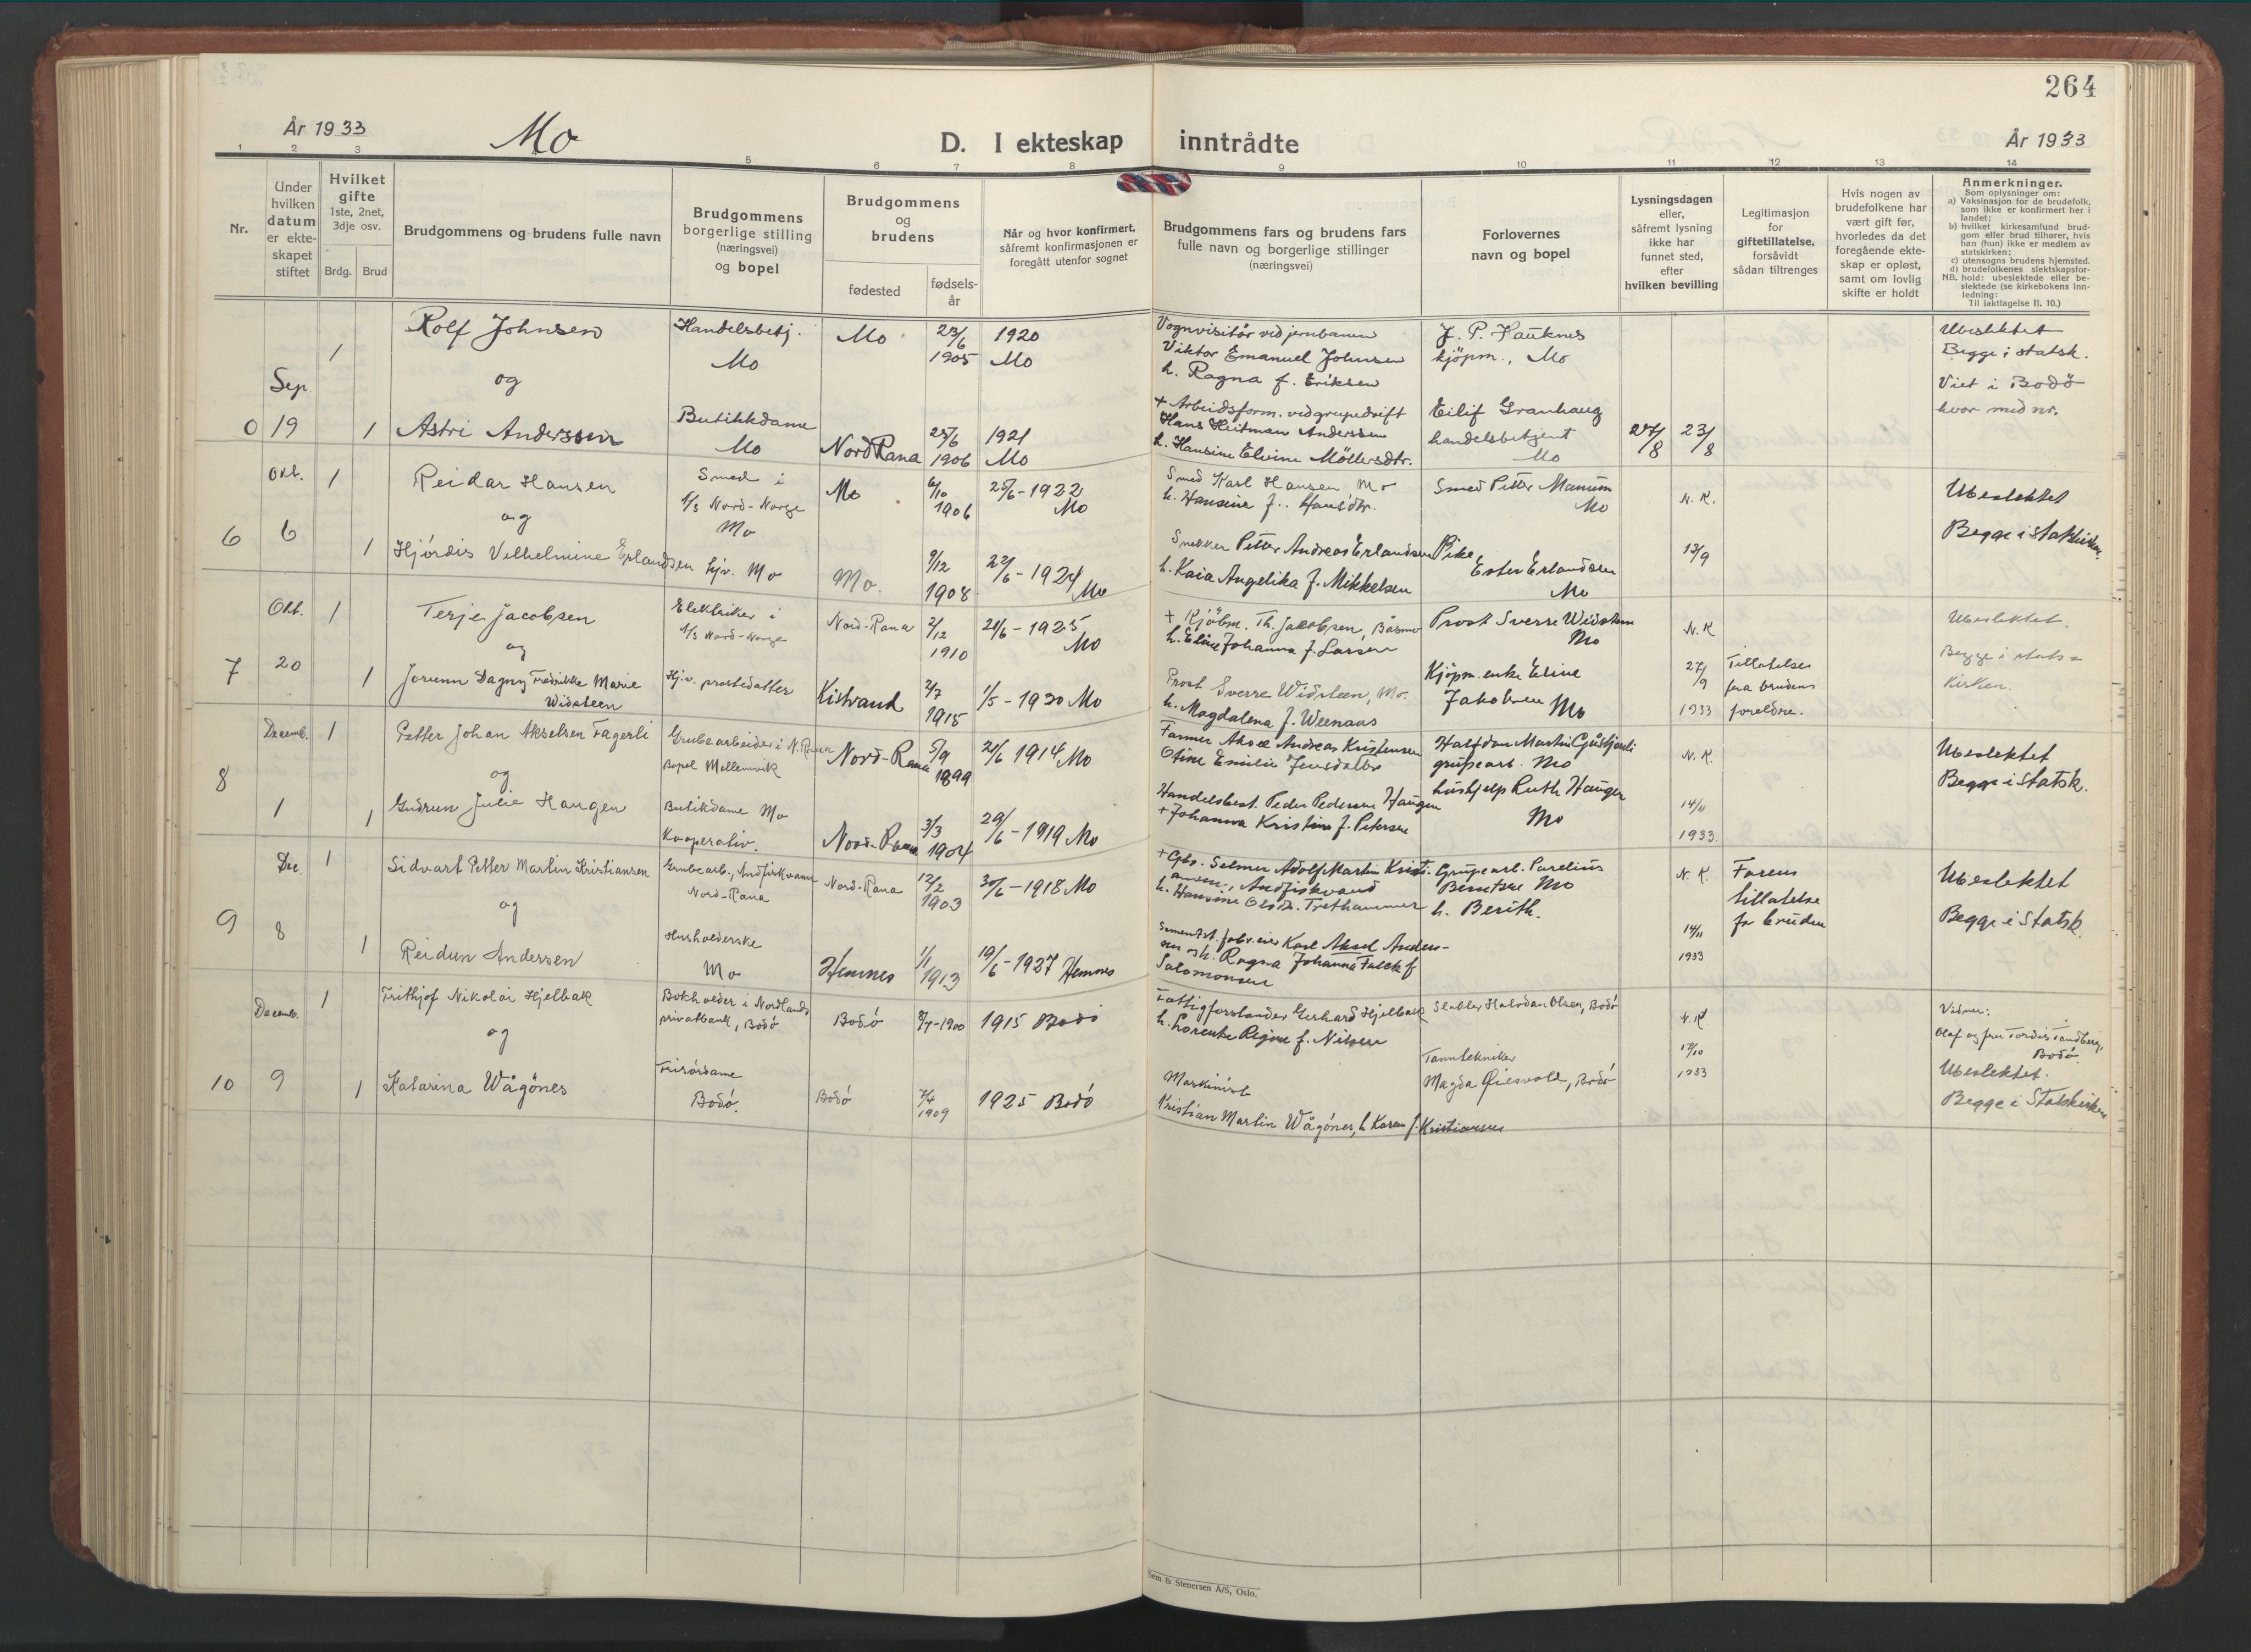 264
År 1933
Mo
D. I ekteskap inntrådte
År 1933
1 2 3 5 6 7 8 9 10 11 12 13 14
Nr.
Under hvilken datum er ekte- skapet stiftet
Hvilket gifte
1ste, 2net, 3dje osv.
Brdg. Brud
Brudgommens og brudens fulle navn
Brudgommens borgerlige stilling (næringsvei) og bopel
Brudgommens og brudens
fødested
fødsels- år
Når og hvor konfirmert, såfremt konfirmasjonen er foregått utenfor sognet
Brudgommens fars og brudens fars fulle navn og borgerlige stillinger (næringsvei)
Forlovernes navn og bopel
Lysningsdagen eller, såfremt lysning ikke har funnet sted, efter hvilken bevilling
Legitimasjon for giftetillatelse, forsåvidt sådan tiltrenges
Hvis nogen av brudefolkene har vært gift før, hvorledes da det foregående ekte- skap er opløst, samt om lovlig skifte er holdt
Anmerkninger.
Som oplysninger om:
a) Vaksinasjon for de brudefolk, som ikke er konfirmert her i landet;
b) hvilket kirkesamfund brud- gom eller brud tilhører, hvis han (hun) ikke er medlem av statskirken;
c) utensogns brudens hjemsted.
d) brudefolkenes slektskapsfor-
NB. hold: ubeslektede eller be- slektede (se kirkebokens inn- ledning:
Til iakttagelse II. 10.)
0
Sep
19
1
Rolf Johnsen
og
1
Astri Anderssen
Handelsbetj.
Mo
Butikkdame
Mo
Mo
23/6 1905
1920
Mo
Nord Rana
25/6 1906
1921
Mo
Vognvisitör ved jernbanen
Viktor Emanuel Johnsen
h. Ragna f. Eriksen
+ Arbeidsform. ved grupedrift
Hans Heitman Anderssen
h. Hansine Elvine Möllersdtr.
J. P. Hauknes
kjöpm., Mo
Eilif Granhaug
handelsbetjent
Mo
27/8 23/8
Ubeslektet
Begge i statsk.
Viet i Bodö
hvor med nr.
6
Okt.
6
1
Reidar Hansen
og
1
Hjördis Vilhelmine Erlandsen
Smed i
A/S Nord-Norge
Mo
hjv. Mo
Mo
6/10 1906
25/6 - 1922
Mo
Mo.
9/12 1908
22/6 - 1924
Mo
Smed Karl Hansen Mo
h. Hansine f. Hansdtr.
Snekker Petter Andreas Erlandsen
h. Kaia Angelika f. Mikkelsen
Smed Petter Manum
Mo
Pike
Ester Erlandsen
Mo
N. K.
13/9
Ubeslektet
Begge i statskirken.
7
Okt.
20
1
Terje Jacobsen
og
1
Jorunn Dagny Fredrikke Marie
Widsteen
Elektriker i
A/S Nord-Norge
Hjv. prostedatter
Nord-Rana
2/12 1910
21/6 - 1925
Mo
Kistrand
2/7 1915
1/5 - 1930 Mo
+ Kjöbm. Th. Jakobsen, Båsmo
h. Eline Johanna f. Larsen
Prost Sverre Widsteen, Mo.
h. Magdalena f. Weenaas
Prost Sverre Widsteen
Mo
Kjöpm. enke Eline
Jakobsen Mo
N. K
27/9
1933
Tillatelse
fra brudens
foreldre.
Ubeslektet.
Begge i stats=
kirken.
8
Decemb.
1
1
Petter Johan Akselsen Fagerli
og
1
Gudrun Julie Haugen
Grubearbeider i N. Rana
Bopel Mellemvik
Butikdame Mo
Kooperativ.
Nord-Rana
5/9 1899
21/6 1914 Mo
Nord-Rana
3/3 1904
29/6 - 1919 Mo
Farmer Aksel Andreas Kristensen
Otine Emilie Jensdatter
Handelsbest. Peder Pedersen Haugen
+ Johanna Kristine f. Petersen
Halfdan Martin
grubearb. Mo
hushjelp Ruth Haugen
Mo
N. K.
14/11
1933
Ubeslektet
Begge i Statsk.
9
Dec.
8
1
Sidvart Petter Martin Kristiansen
og
1
Reidun Andersen
Grubearb., Andfiskvann
Nord-Rana
Husholderske
Mo
Nord-Rana
12/2 1903
30/6 - 1918 Mo
Hemnes
1/1 1913
19/6 - 1927 Hemnes
+ Gbr. Selmer Adolf Martin Kristi-
ansen, Andfiskvand
h. Hansine Olsdtr.
Karl Aksel Ander-
sen og h. Ragna Johanna Falck f
Salomonsen
Grupearb. Parelius
Berntsen Mo
h. Berith.
N. K
14/11
1933
Farens
tillatelse
for bruden
Ubeslektet
Begge i Statsk.
10
Decemb.
9
1
Frithjof Nikolai Hjelbak
og
1
Katarina Wågönes
Bokholder i Nordlands
privatbank, Bodö
Frisördame
Bodö.
Bodö
8/7-1900
1915 Bodö
Bodö
7/4 1909
1925 Bodö
Fattigforstander Gerhard Hjelbak
h. Lorentse Regine f. Nilsen
Maskinist
Kristian Martin Wågönes, h Karen f. Kristiansen
Halvdan Olsen, Bodö
Tanntekniker
Magda Öiesvold, Bodö
N. K
17/10
1933
Vidner:
Olaf og fru Tordis Tandberg,
Bodö.
Ubeslektet.
Begge i Statskirken
Sem & Stenersen A/S, Oslo.